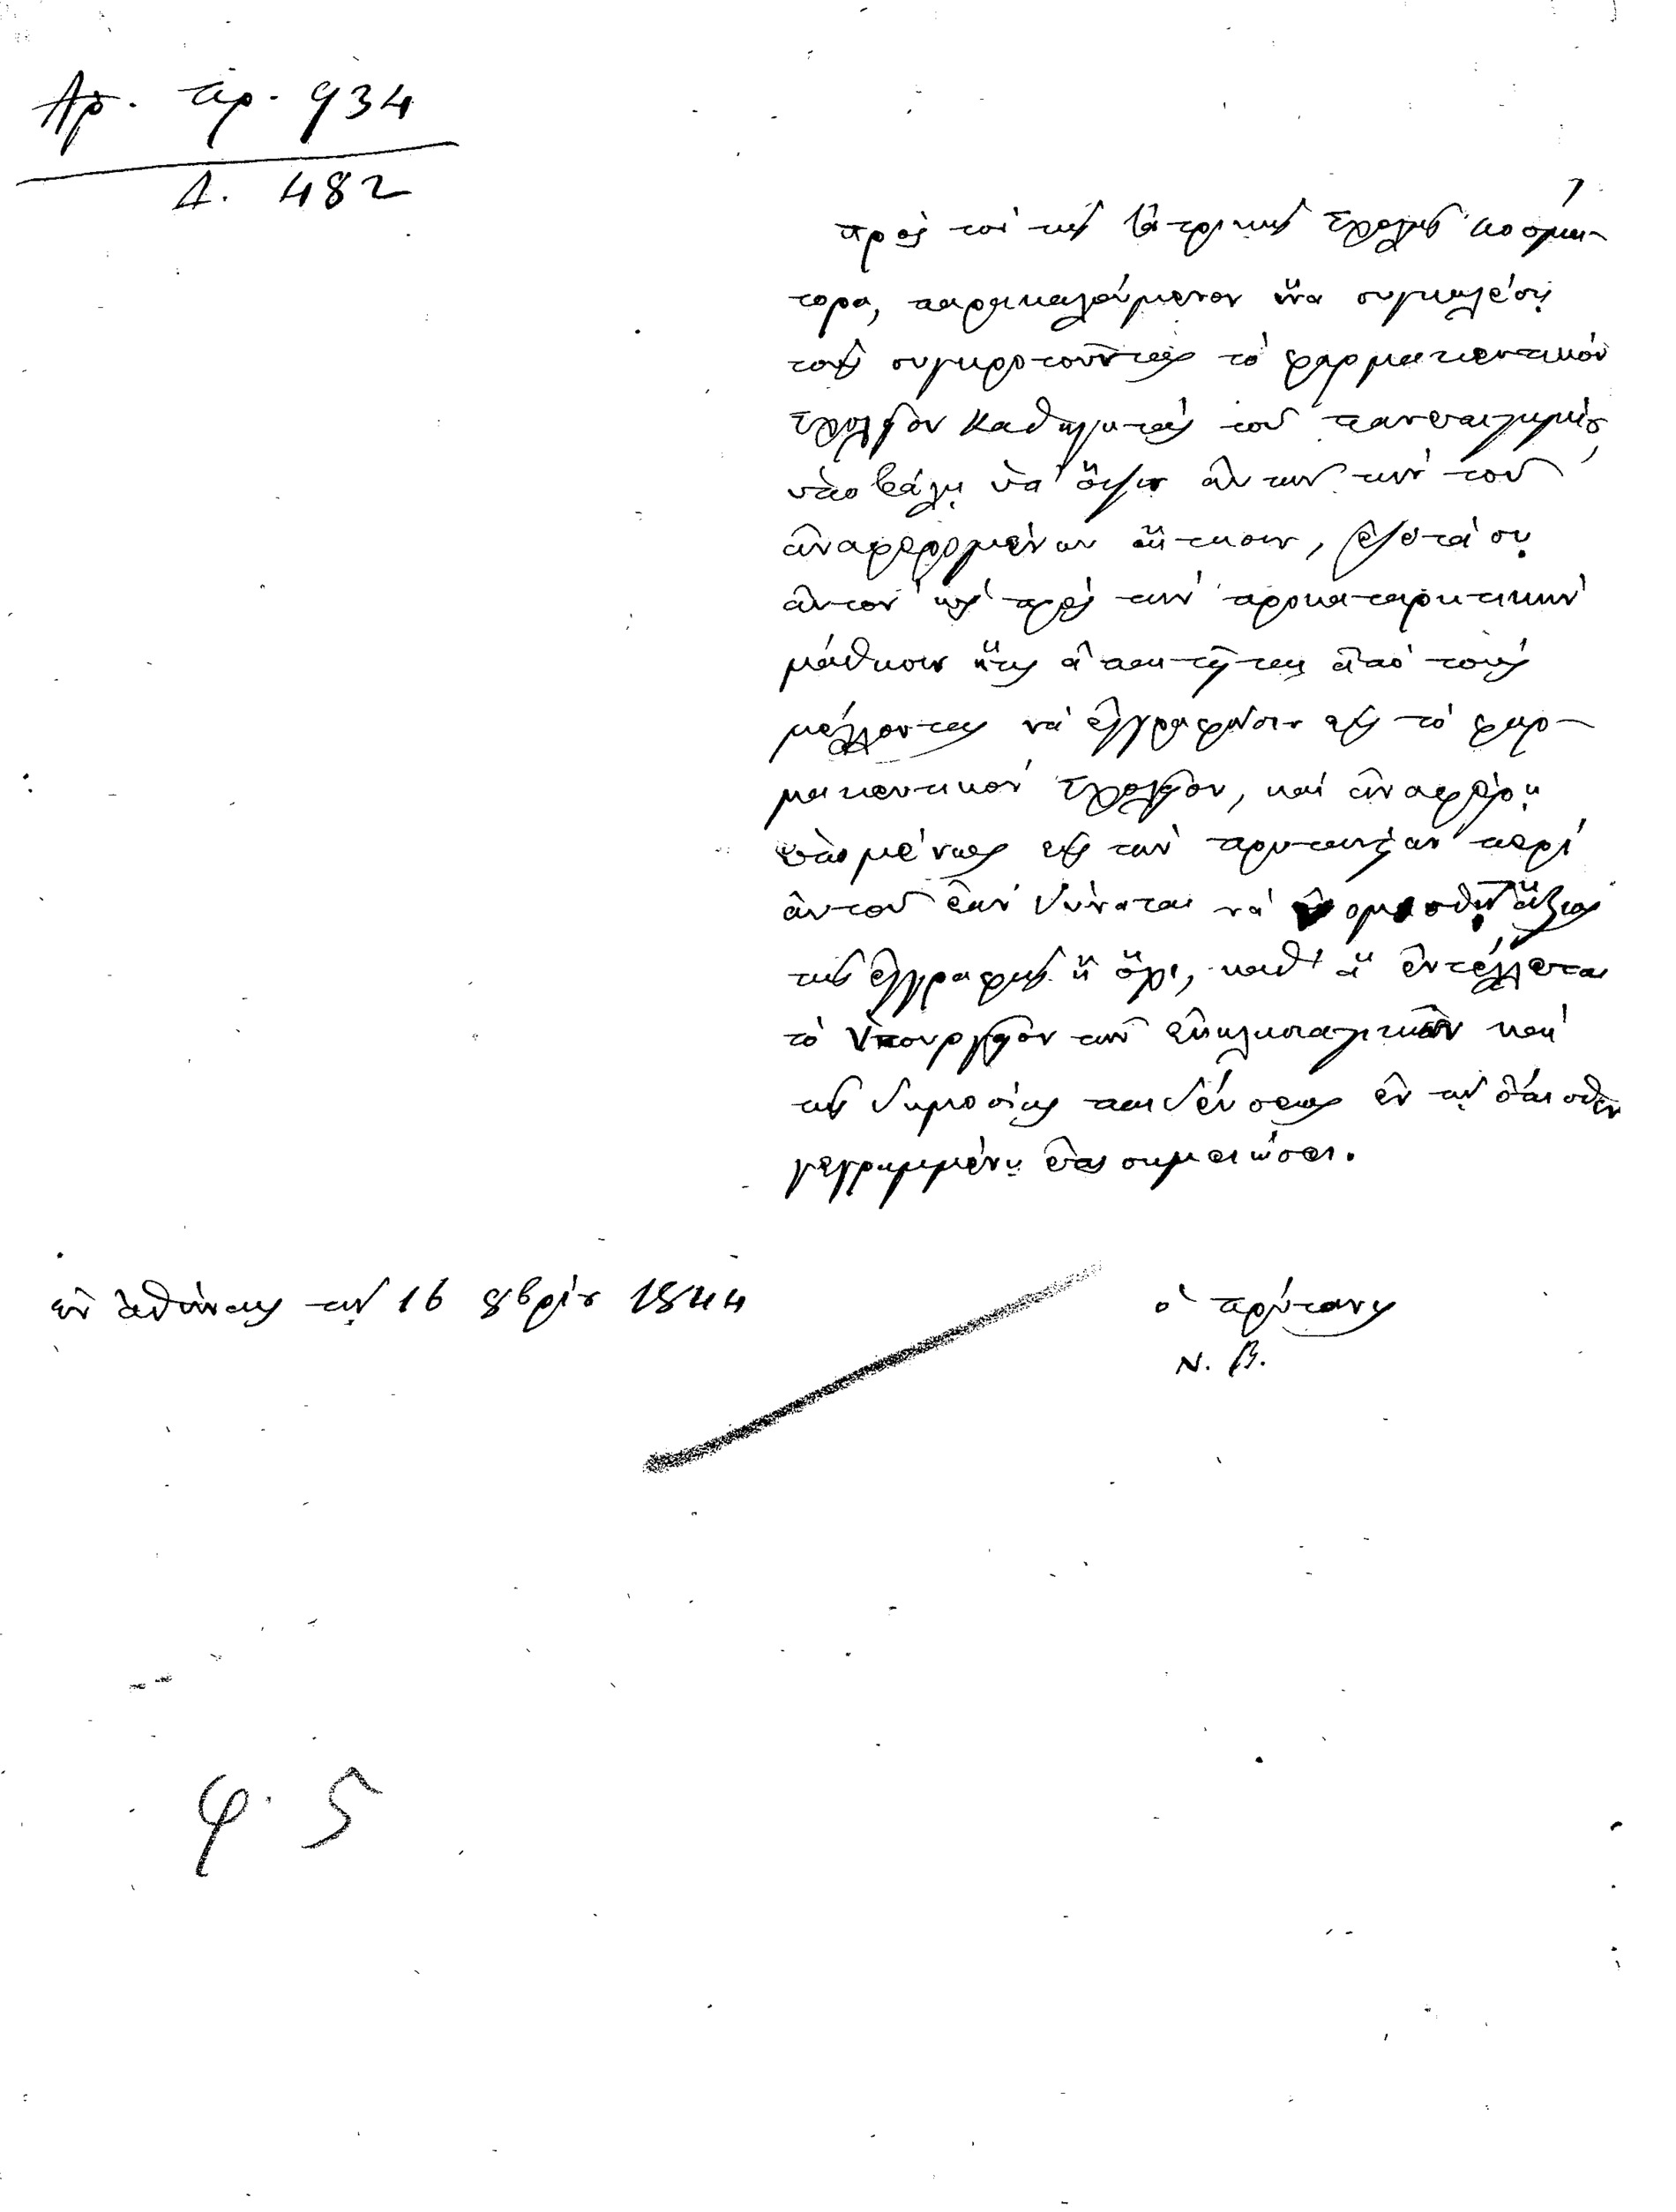 Αρ. πρ. 934
Δ. 482
πρὸς τὸν τῆς ἰατρικῆς σχολῆς κοσμή-
τορα, παρακαλούμενον ἵνα συγκαλέσῃ
τοὺς συγκροτοῦντας τὸ φαρμακευτικὸν
σχολεῖον καθηγητὰς τοῦ πανεπιστημίου
ὑποβάλῃ ὑπ' ὄψιν αὐτῶν τὴν τοῦ
ἀναφερομένου αἴτησιν, ἐξετάσῃ
αὐτὸν ὡς πρὸς τὴν προκαταρκτικὴν
μάθησιν ἥτις ἀπαιτῆται ἀπὸ τοὺς
μέλλοντας νὰ ἐγγραφῶσιν εἰς τὸ φαρ-
μακευτικὸν σχολεῖον, καὶ ἀναφέρῃ
ἑπομένως εἰς τὴν πρυτανείαν περὶ
αὐτοῦ ἐὰν δύναται νὰ νομισθῇ ἄξιος
τῆς ἐγγραφῆς ἢ ὄχι, καθ' ἃ ἐντέλλεται
τὸ Ὑπουργεῖον τῶν ἐκκλησιαστικῶν καὶ
τῆς δημοσίας παιδεύσεως ἐν τῇ ὄπισθεν
γεγραμμένῃ ἐπισημειώσει.
ἐν ἀθήναις τῇ 16 8βρίου 1844
ὁ πρύτανις
Ν. Β.
φ. 5